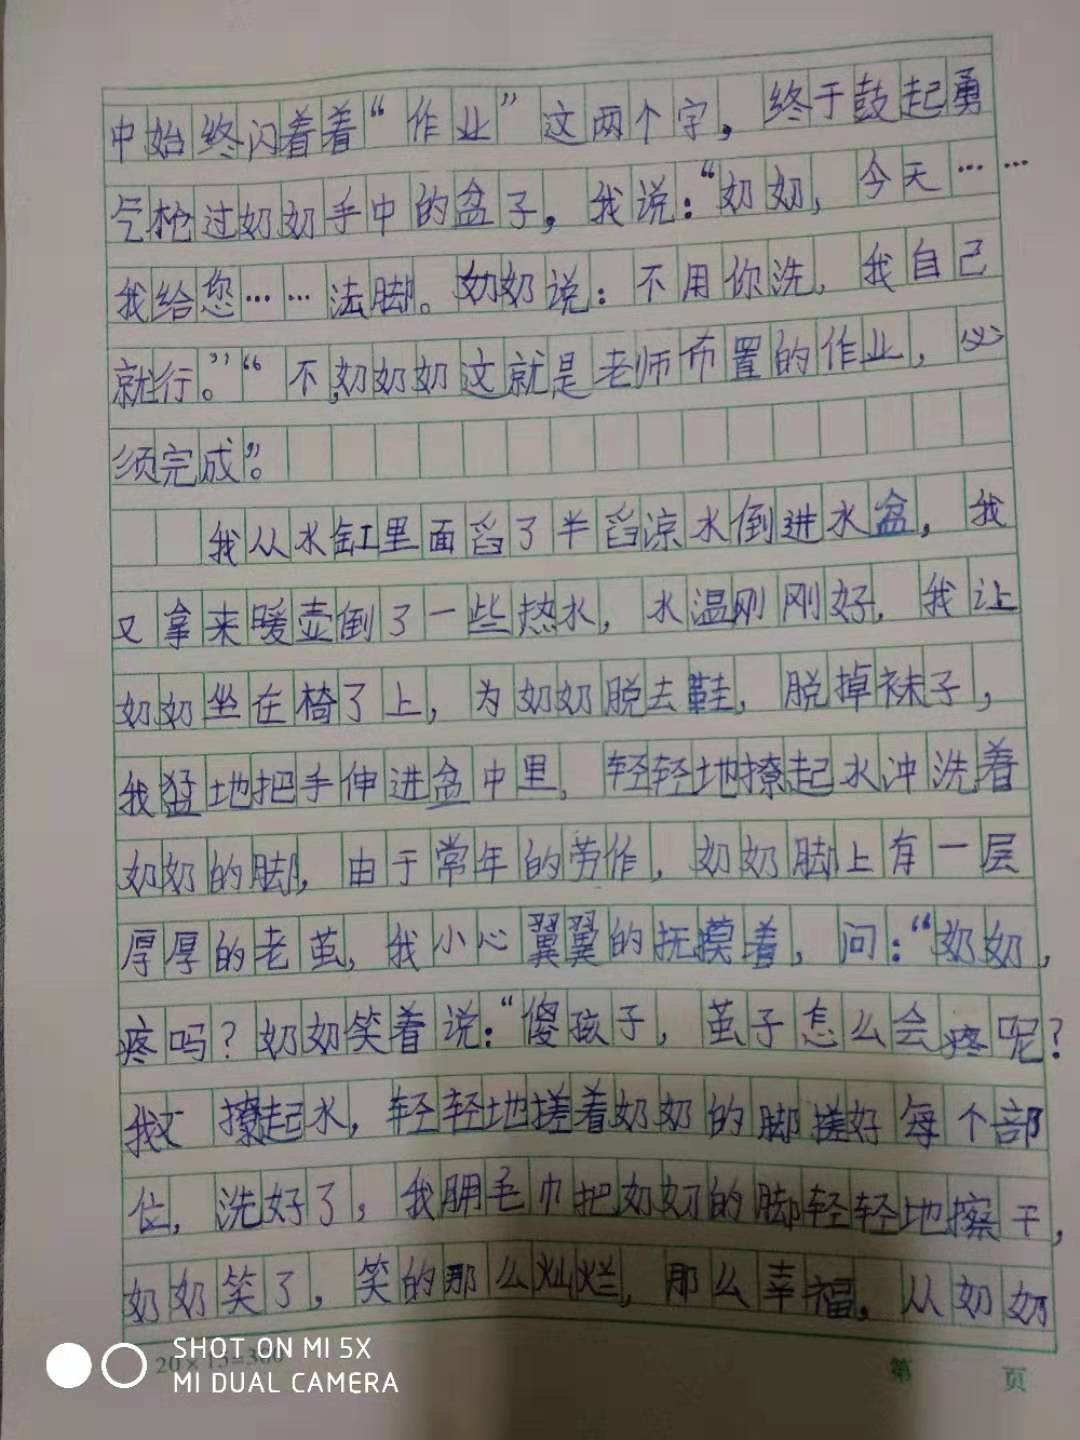 中始终闪着着“作业”这两个字，终于鼓起勇
气枪过奶奶手中的盆子，我说：“奶奶，今天……
我给您……法脚。奶奶说：不用你洗，我自己
就行。”“不，奶奶奶这就是老师布置的作业，必
须完成”。
我从水缸里面舀了半舀凉水倒进水盆，我
又拿来暖壶倒了一些热水，水温刚刚好，我让
奶奶坐在椅了上，为奶奶脱去鞋，脱掉袜子，
我猛地把手伸进盆中里，轻轻地撩起水冲洗着
奶奶的脚，由于常年的劳作，奶奶脚上有一层
厚厚的老茧，我小心翼翼的抚摸着，问：“奶奶，
疼吗？奶奶笑着说：“傻孩子，茧子怎么会疼呢？
我又撩起水，轻轻地搓着奶奶的脚搓好每个部
位，洗好了，我用毛巾把奶奶的脚轻轻地擦干，
奶奶笑了，笑的那么灿烂，那么幸福，从奶奶
20×15=300
第 页
SHOT ON MI 5X
MI DUAL CAMERA